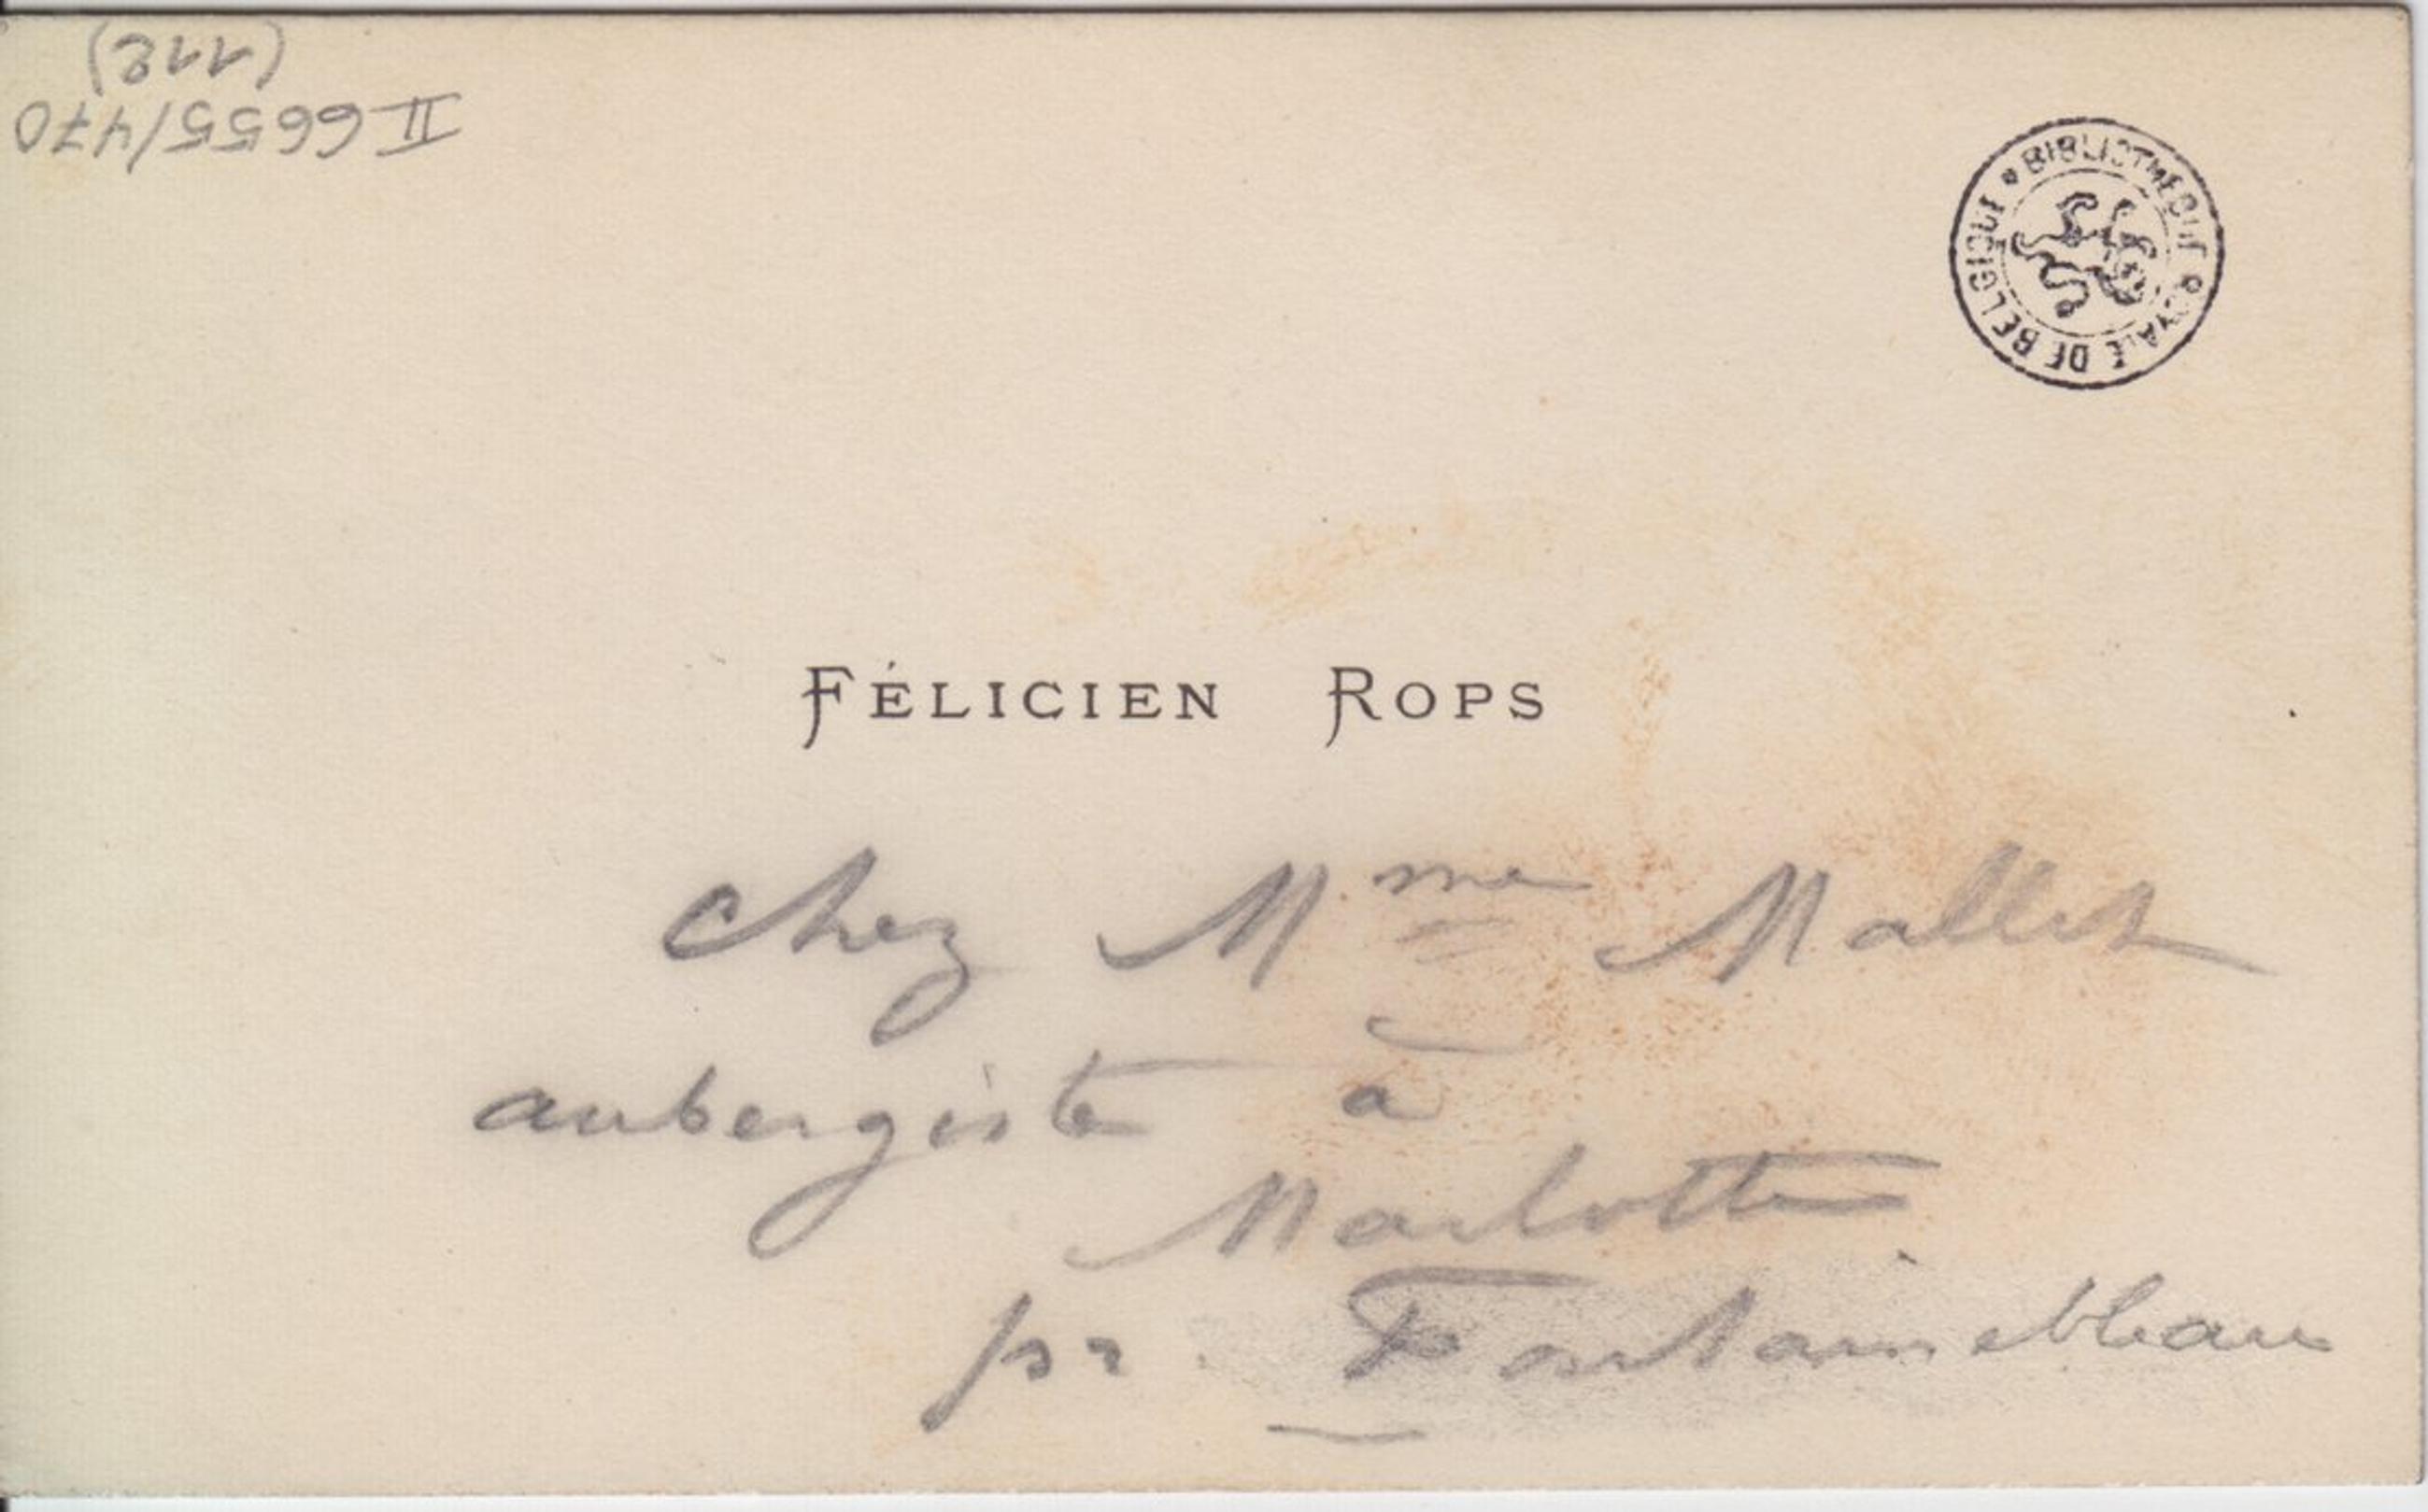 II 6655/470
(112)
BIBLIOTHEQUE ROYALE DE BELGIQUE
FÉLICIEN ROPS
chez Mme Mallet
aubergiste à
Marlotte
pr. Fontainebleau